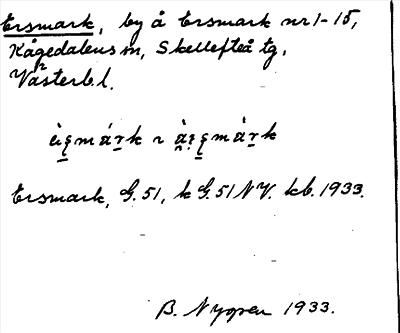 Ersmark, by å Ersmark nr 1-15,
Kågedalens sn, Skellefteå tg,
Västerb. l.
Ersmark, G. 51, k G. 51 NV. kb. 1933.
B. Nygren 1933.